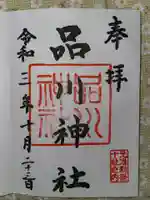 奉拝
品川神社
令和三年十月二十三日
品川神社